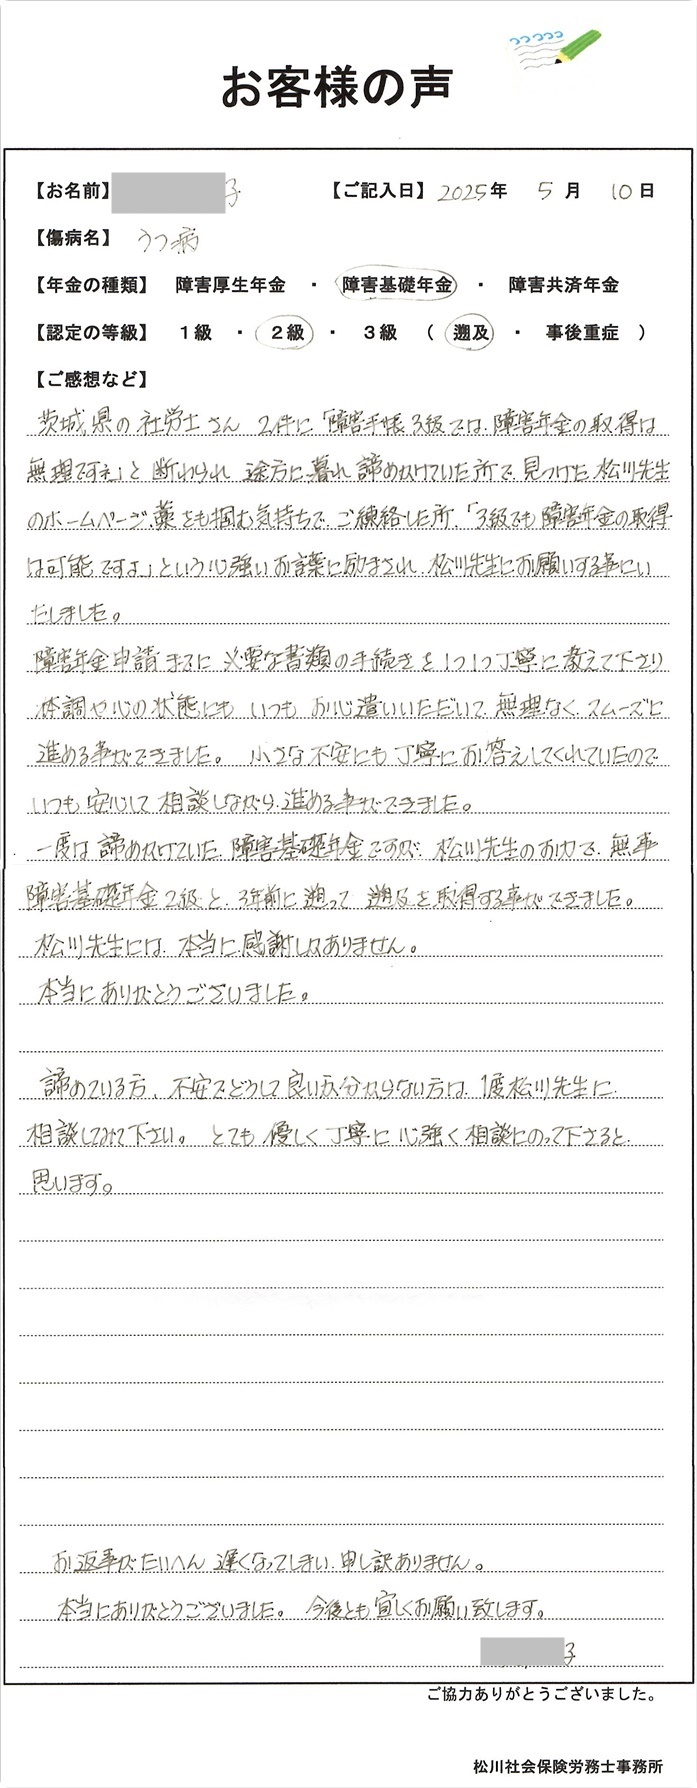 お客様の声
【お名前】 子 【ご記入日】 2025年 5月 10日
【傷病名】 うつ病
【年金の種類】 障害厚生年金 ・ 障害基礎年金 ・ 障害共済年金
【認定の等級】 1級 ・ 2級 ・ 3級 ( 遡及 ・ 事後重症 )
【ご感想など】
茨城県の社労士さん 2件に「障害手帳3級では、障害年金の取得は
無理ですネ」と断わられ 途方に暮れ 諦めかけていた所で、見つけた松川先生
のホームページ、藁をも掴む気持ちで、ご練絡した所、「3級でも障害年金の取得
は可能ですよ」という心強いお言葉に励まされ、松川先生にお願いする事にい
たしました。
障害年金申請までに 必要な書類の手続きを1つ1つ丁寧に教えて下さり
体調や心の状態にも いつも お心遣いいただいて、無理なく、スムーズに
進める事ができました。 小さな不安にも丁寧にお答えしてくれていたので
いつも安心して相談しながら、進める事ができました。
一度は諦めかけていた、障害基礎年金ですが、松川先生のお力で、無事
障害基礎年金2級と、3年前に遡って 遡及を取得する事ができました。
松川先生には、本当に感謝しかありません。
本当にありがとうございました。
諦めている方、不安でどうして良いか分からない方は、1度松川先生に
相談してみて下さい。 とても優しく丁寧に心強く相談にのって下さると
思います。
お返事がたいへん遅くなってしまい、申し訳ありません。
本当にありがとうございました。 今後とも宜しくお願い致します。
子
ご協力ありがとうございました。
松川社会保険労務士事務所